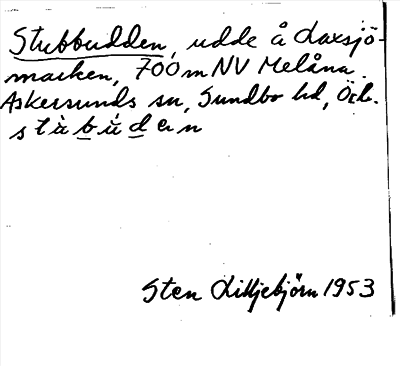 Stubbudden, udde å Laxsjö-
marken, 700 m NV Melåna.
Askersunds sn, Sundbo hd, Ör.
stàbúden
Sten Lilljebjörn 1953